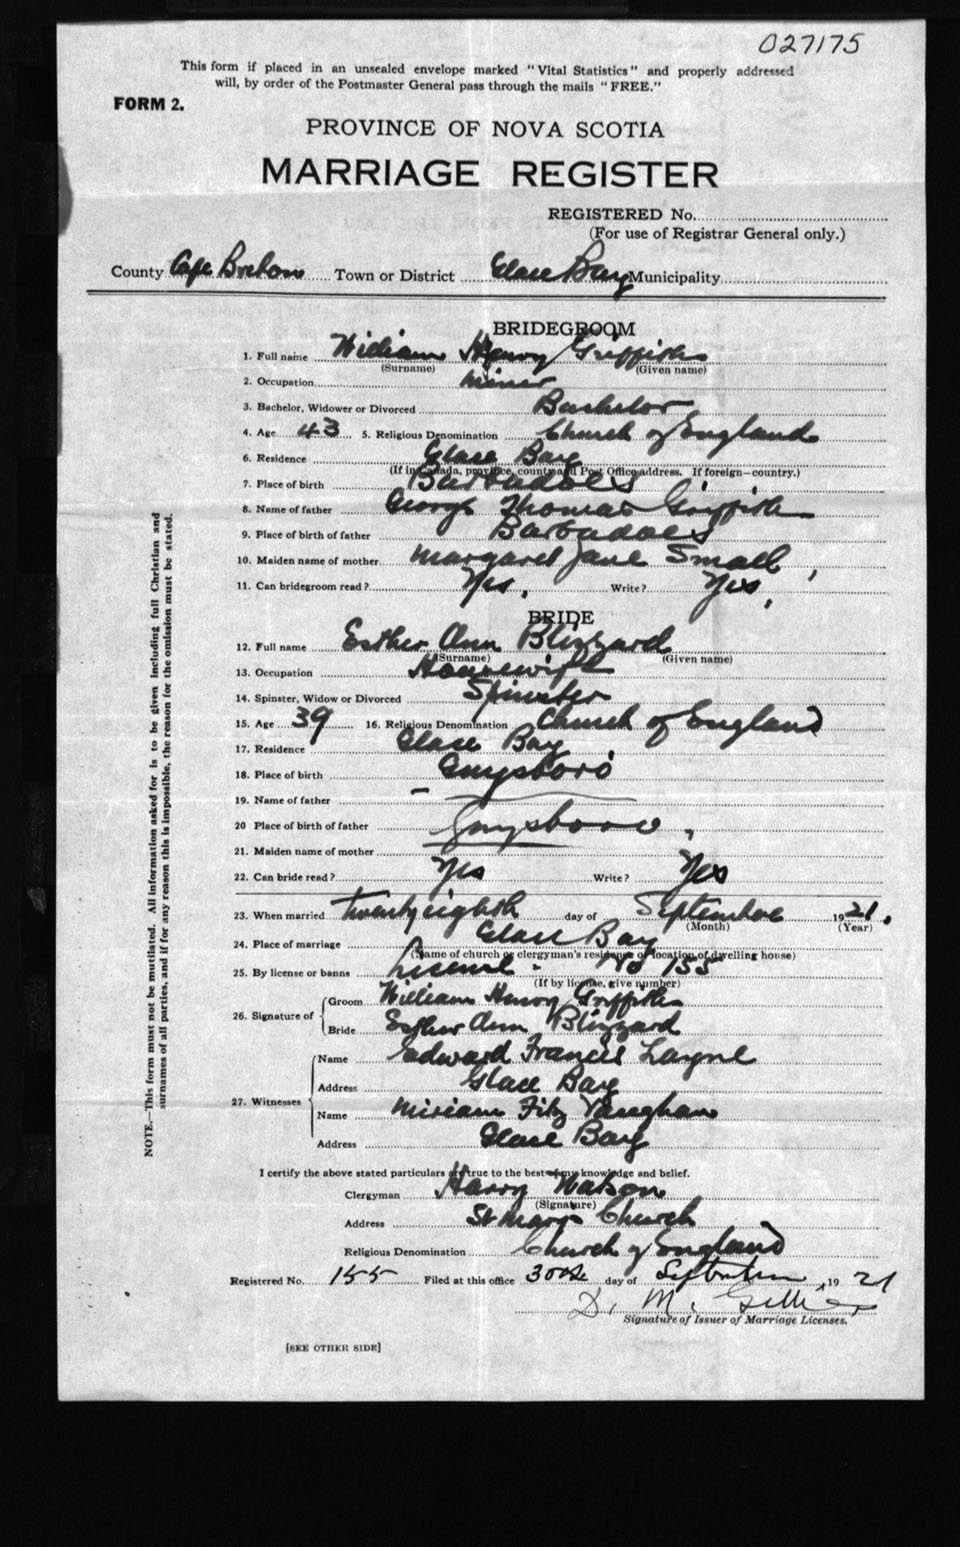 027175
This form if placed in an unsealed envelope marked "Vital Statistics" and properly addressed
will, by order of the Postmaster General pass through the mails "FREE."
FORM 2.
PROVINCE OF NOVA SCOTIA
MARRIAGE REGISTER
REGISTERED No.
(For use of Registrar General only.)
County Cape Breton Town or District Glace Bay Municipality
BRIDEGROOM
1. Full name William Henry Griffith
(Surname) (Given name)
2. Occupation miner
3. Bachelor, Widower or Divorced Bachelor
4. Age 43 5. Religious Denomination Church of England
6. Residence Glace Bay
(If in Canada, province, county and Post Office address. If foreign—country.)
7. Place of birth Barbadoes
8. Name of father George Thomas Griffith
9. Place of birth of father Barbadoes
10. Maiden name of mother Margaret Jane Small,
11. Can bridegroom read? Yes, Write? Yes,
BRIDE
12. Full name Esther Ann Blizzard
(Surname) (Given name)
13. Occupation Housewife
14. Spinster, Widow or Divorced Spinster
15. Age 39 16. Religious Denomination Church of England
17. Residence Glace Bay
18. Place of birth Guysboro
19. Name of father —
20 Place of birth of father Guysboro,
21. Maiden name of mother
22. Can bride read? Yes Write? Yes
23. When married twenty eighth day of September 1921.
(Month) (Year)
24. Place of marriage Glace Bay
(Name of church or clergyman's residence or location of dwelling house)
25. By license or banns License - No 155
(If by license, give number)
26. Signature of Groom William Henry Griffith
Bride Esther Ann Blizzard
27. Witnesses Name Edward Francis Layne
Address Glace Bay
Name Miriam Fitz Vaughan
Address Glace Bay
I certify the above stated particulars are true to the best of my knowledge and belief.
Clergyman Harry Watson
(Signature)
Address St Marys Church
Religious Denomination Church of England
Registered No. 155 Filed at this office 30th day of September, 1921
D. M. Gillis
Signature of Issuer of Marriage Licenses.
[SEE OTHER SIDE]
NOTE.—This form must not be mutilated. All information asked for is to be given including full Christian and
surnames of all parties, and if for any reason this is impossible, the reason for the omission must be stated.